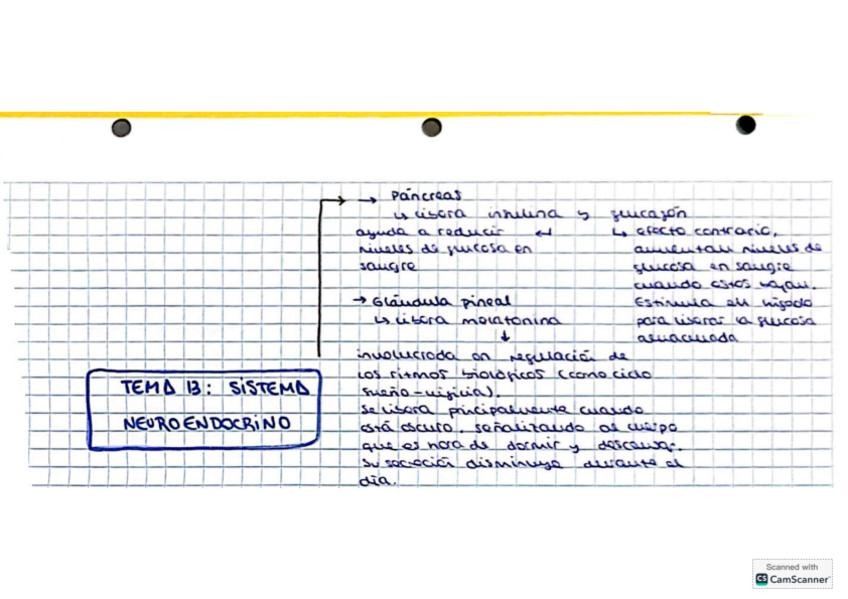 → Páncreas
↳ libera insulina y glucagón
ayuda a reducir ↵
niveles de glucosa en
sangre
↳ efecto contrario,
aumentan niveles de
glucosa en sangre
cuando estos bajan.
Estimula al hígado
para liberar la glucosa
almacenada
→ Glándula pineal
↳ libera melatonina
↓
involucrada en regulación de
los ritmos biológicos (como ciclo
sueño-vigilia).
Se libera principalmente cuando
está oscuro, señalizando al cuerpo
que es hora de dormir y descansar.
Su secreción disminuye durante el
día.
TEMA 13: SISTEMA
NEUROENDOCRINO
Scanned with
CS CamScanner